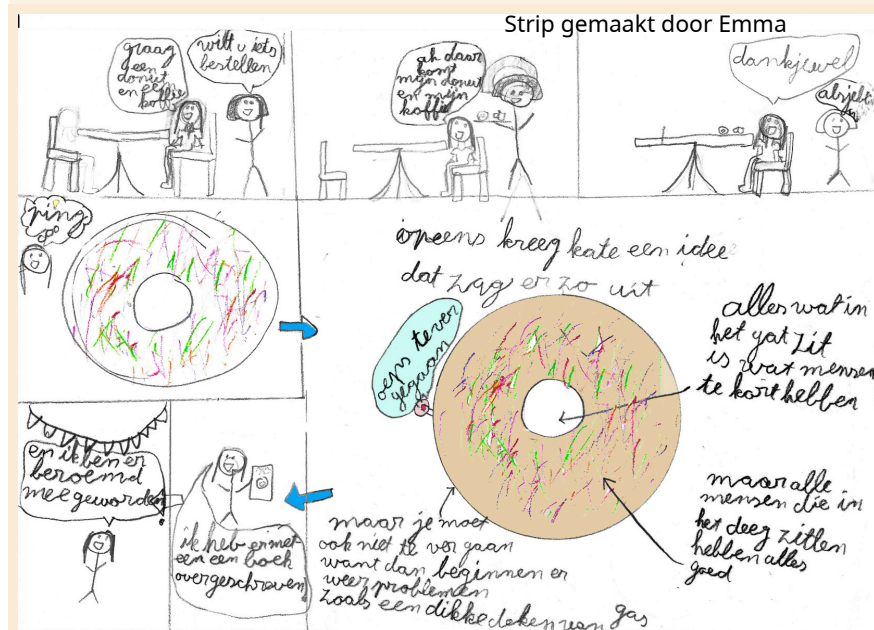 Strip gemaakt door Emma
wilt u iets
bestellen
graag
een
donut
en
koffie
ah daar
komt
mijn donut
en mijn
koffie
dankjewel
ping
opeens kreeg kate een idee
dat zag er zo uit
oeps te ver
gegaan
alles wat in
het gat zit
is wat mensen
te kort hebben
maar alle
mensen die in
het deeg zitten
hebben alles
goed
maar je moet
ook niet te ver gaan
want dan beginnen er
weer problemen
zoals een dikke deken van gas
ik heb er met
een een boek
overgeschreven
en ik ben er
beroemd
mee geworden